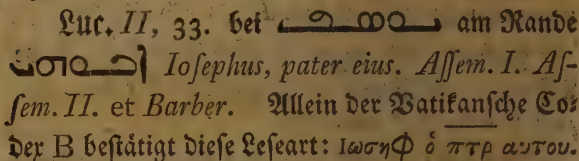 Luc. II, 33. bei ܝܘܣܦ am Rande
ܐܒܘܗܝ Iosephus, pater eius. Assem. I. As-
sem. II. et Barber. Allein der Vatikansche Co-
der B bestätigt diese Leseart: Ιωσηφ ὁ π̅τ̅ρ̅ αυτου.